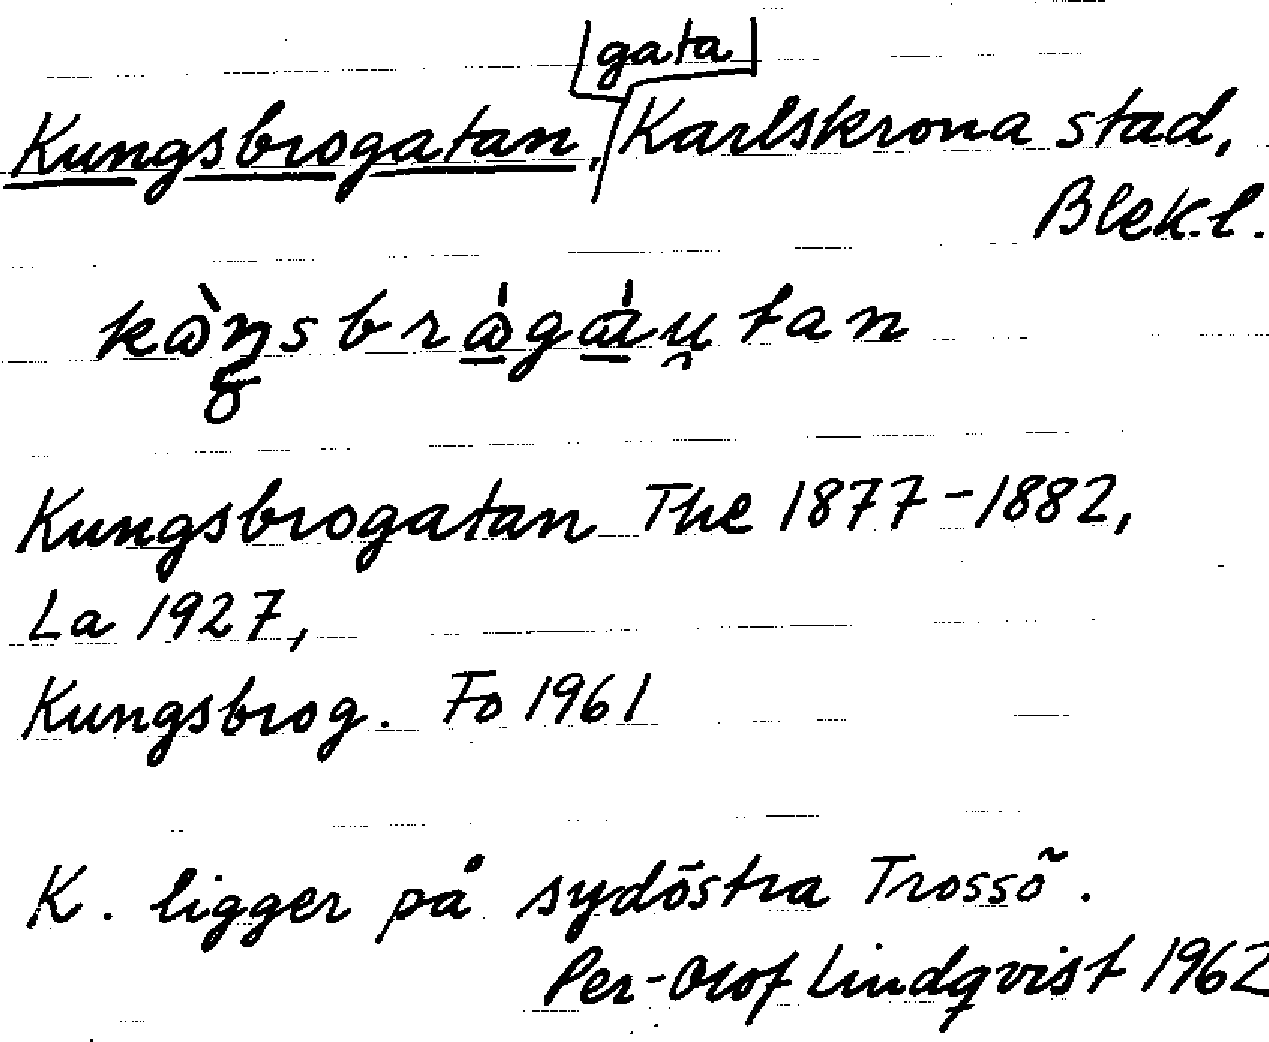 gata
Kungsbrogatan, Karlskrona stad,
Blek.l.
Kungsbrogatan The 1877-1882,
La 1927,
Kungsbrog. Fo 1961
K. ligger på sydöstra Trossö.
Per-Olof Lindqvist 1962